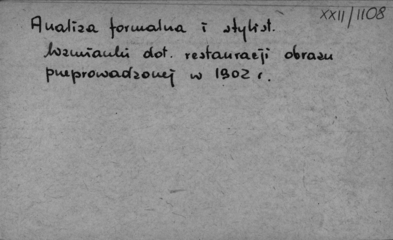 XXII/1108
Analiza formalna i stylist.
Wzmianki dot. restauracji obrazu
przeprowadzonej w 1902 r.